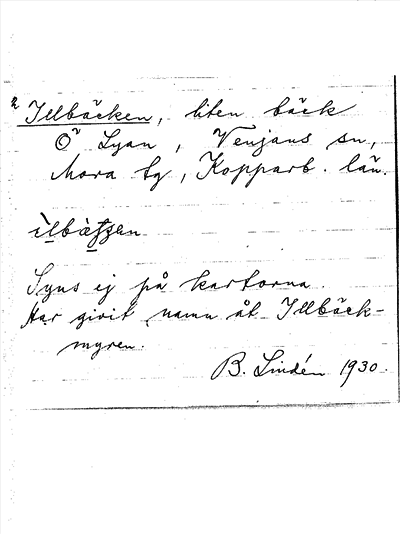 Illbäcken, liten bäck
Ö Lyan, Venjans sn,
Mora tg, Kopparb. län.
Syns ej på kartorna.
Har givit namn åt Illbäck-
myren.
B. Lindén 1930.